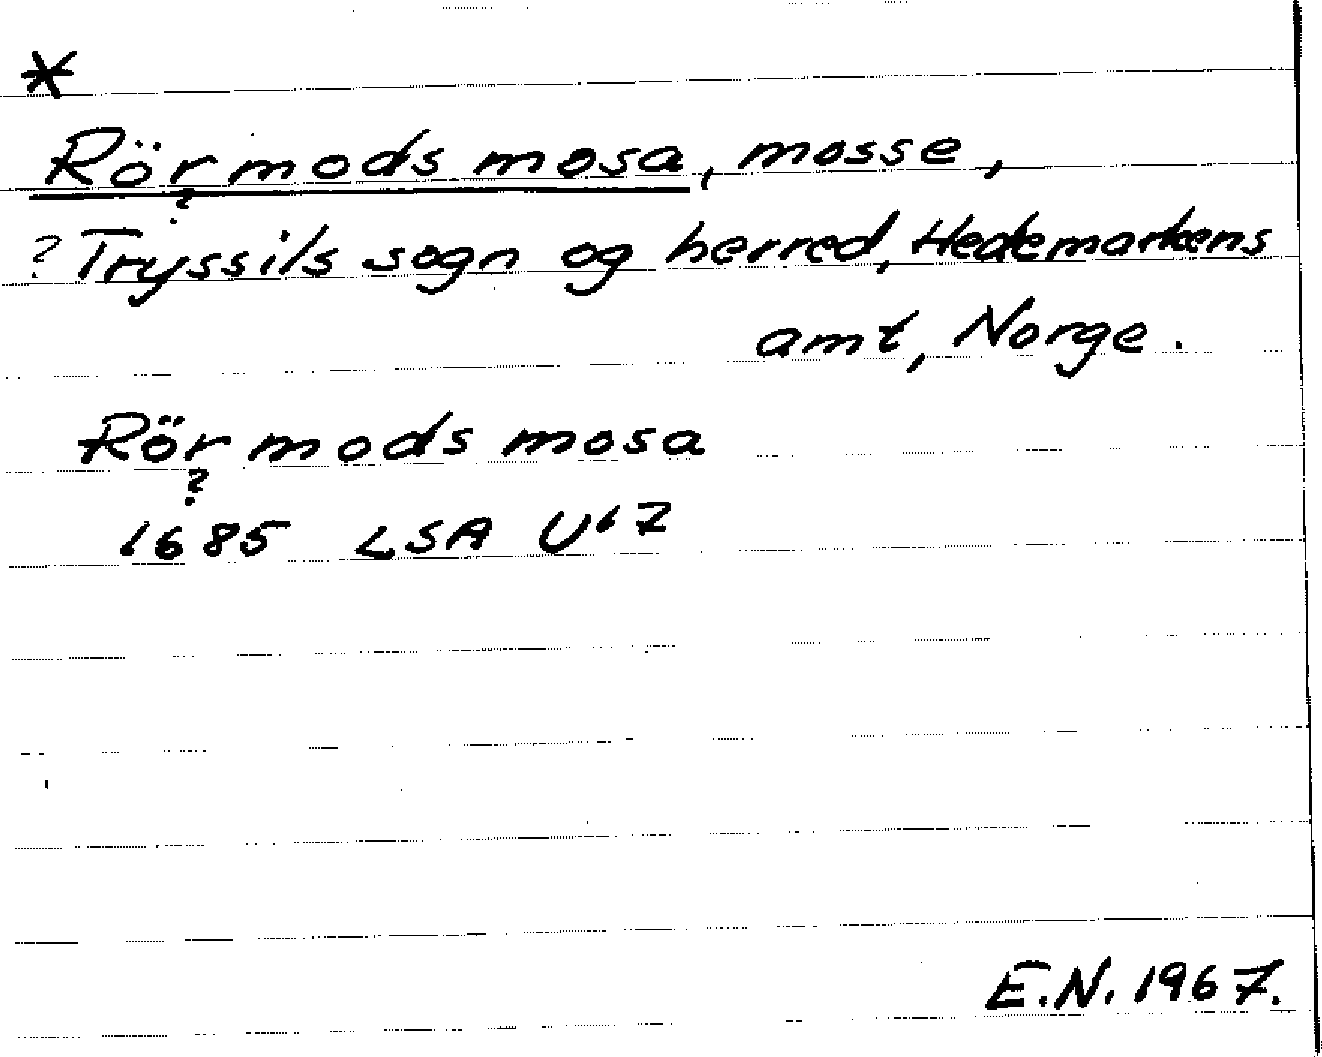 *
Rörmods mosa, mosse,
?
? Tryssils sogn og herred, Hedemarkens
amt, Norge.
Rörmods mosa
?
1685 LSA U'7
E.N. 1967.